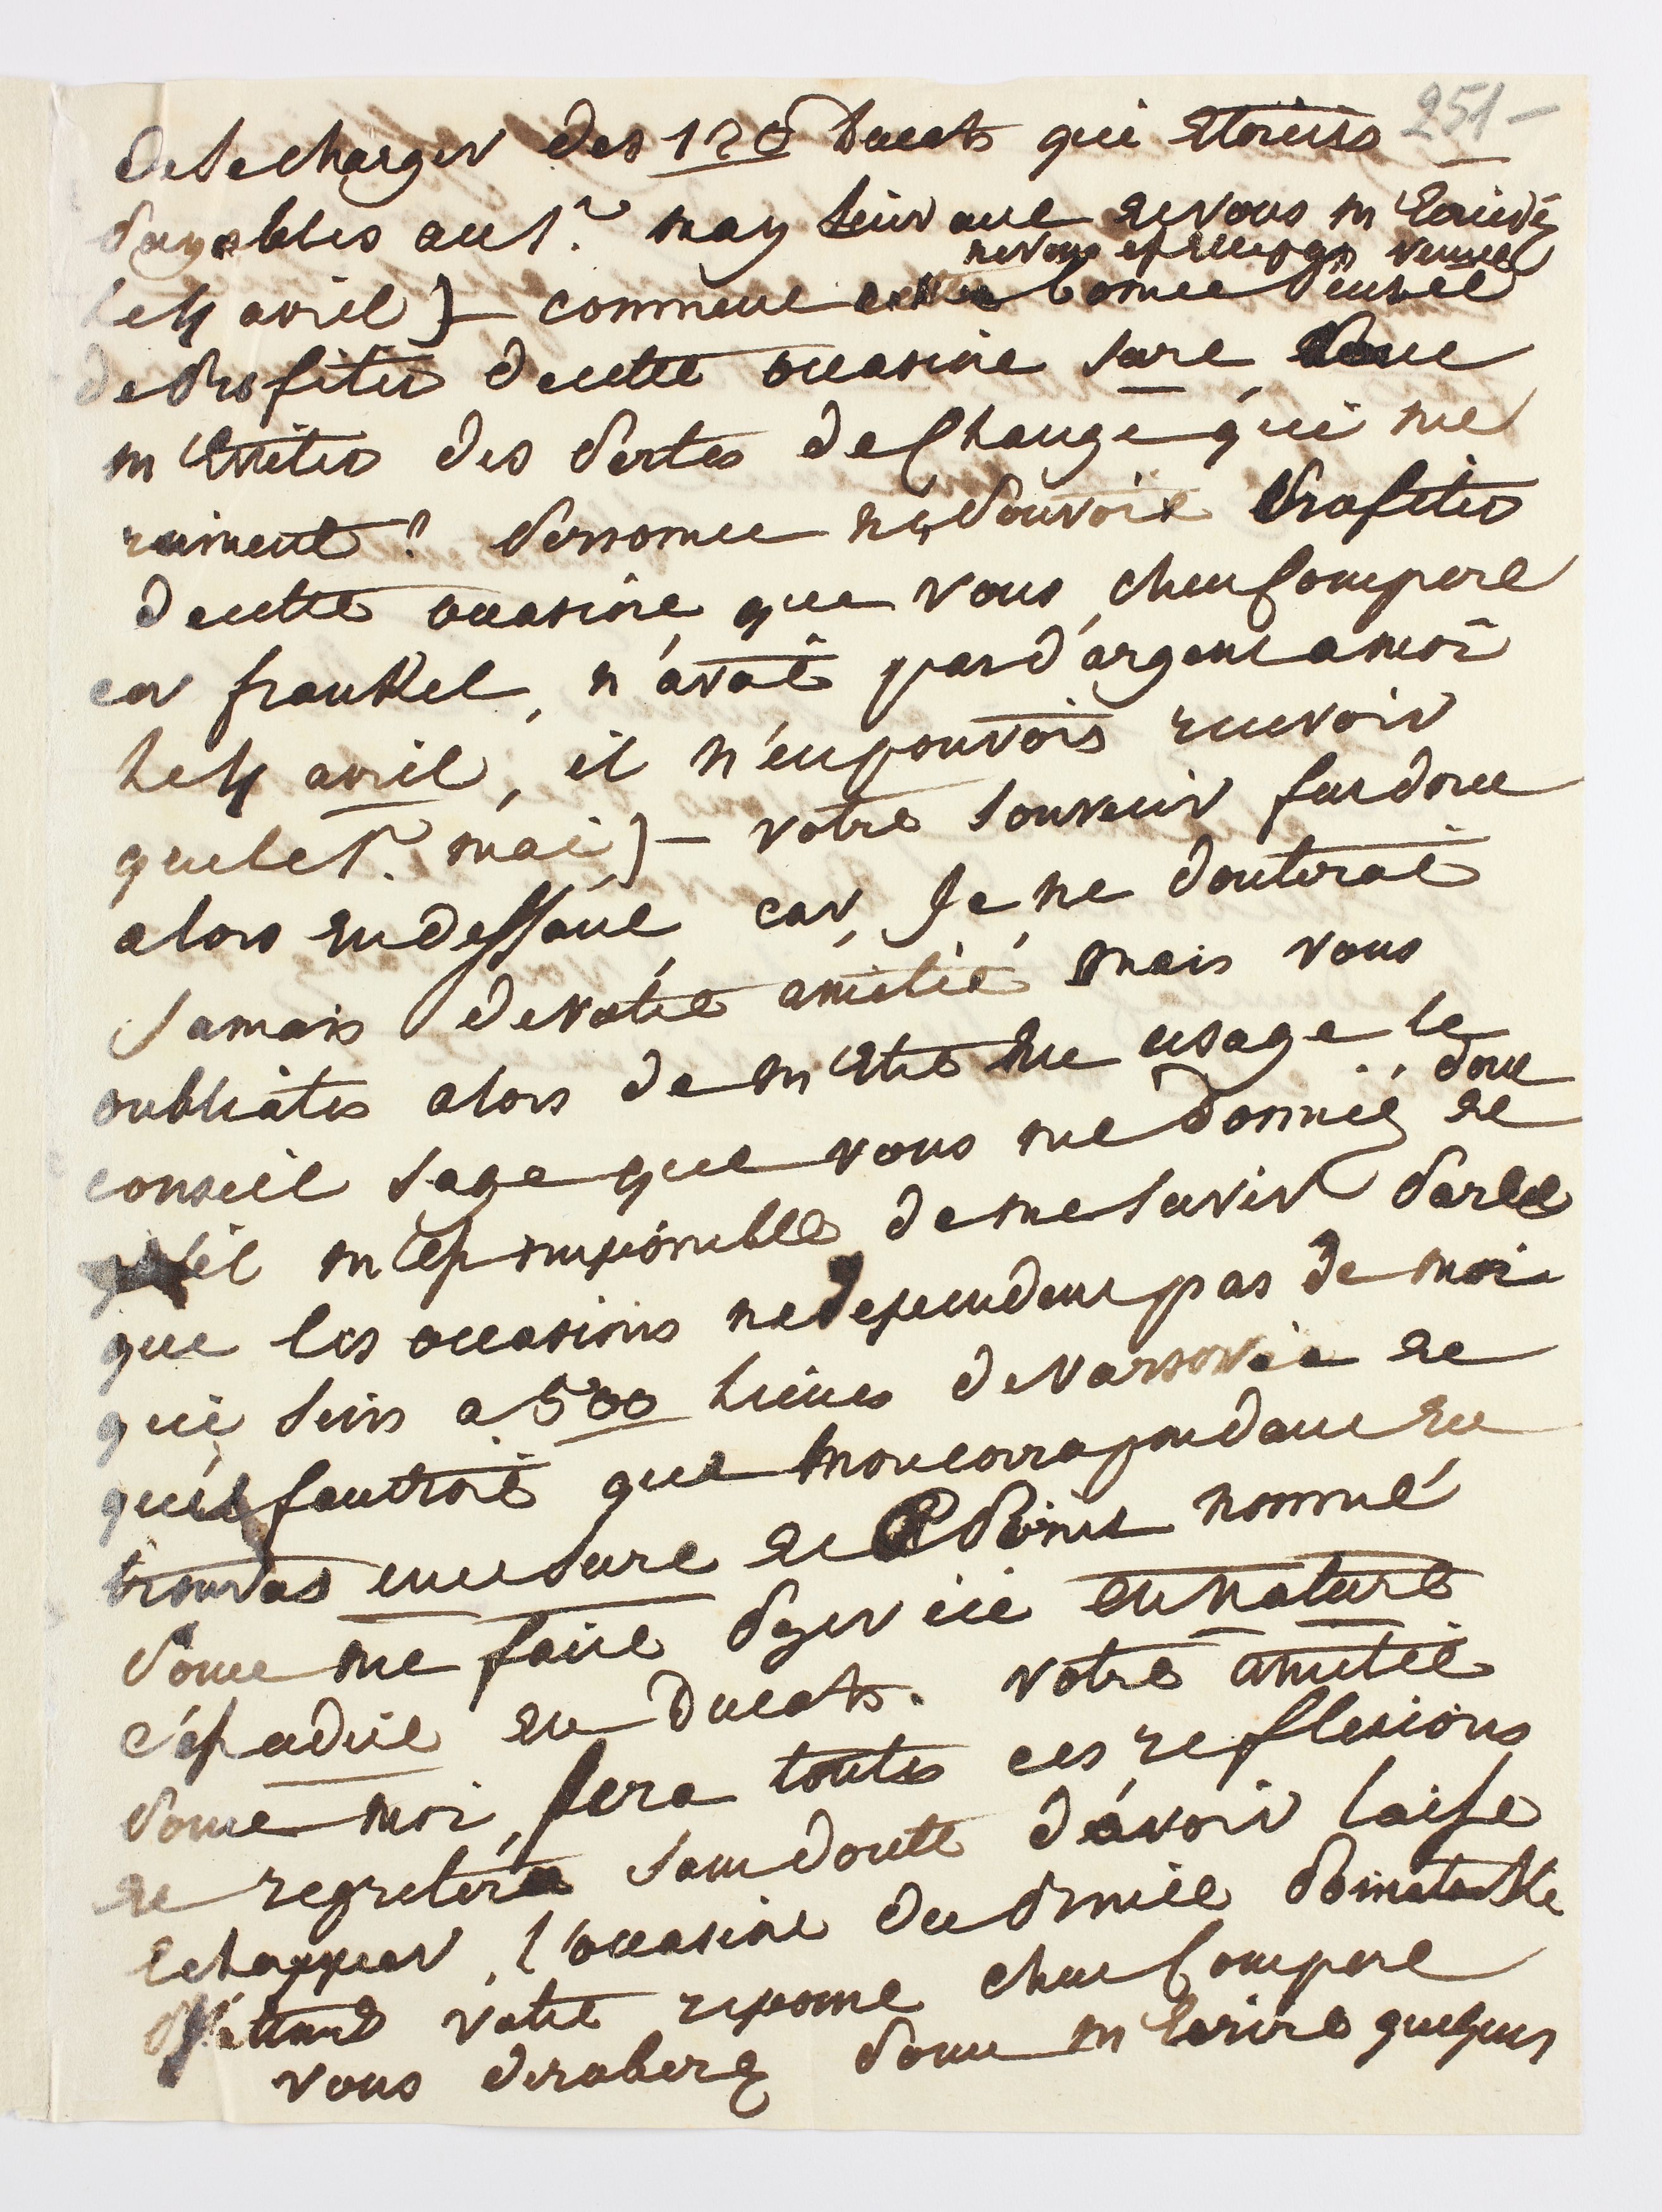 251 –
de se charger des 120 ducats qui etoient
payables au 1r. may suivant et vous m'ecrivés
le 4 avril) – comment ne vous est elle pas venue
la bonne pensée
de profiter de cette occasion sure pour
m'eviter des pertes de change qui me
ruinent? personne n'y pouvoit profiter
de cette occasion que vous cher Compere
car frankel, n'avoit pas d'argent a moi
le 4 avril, il n'en pouvois recevoir
que le 1r. mai) – votre souvenir fut donc
alors en deffaut, car, Je ne douterai
Jamais de votre amitié mais vous
oubliates alors de mettre en usage le
conseil sage que vous me donniés et dont
il m'est impossible de me servir parce
que les occasions ne dependent pas de moi
qui suis a 500 lieues de varsovie et
qu'il faudroit que mon correspondant en
trouvas une sure et a point nommé
pour me faire payer ici en nature
c'est a dire en Ducats. votre amitié
pour moi, fera toutes ces reflexions
et regretera sans doute d'avoir laissé
echapper l'occasion du prince
J'attend votre reponse cher Compere
vous deroberez pour m'ecrire quelques